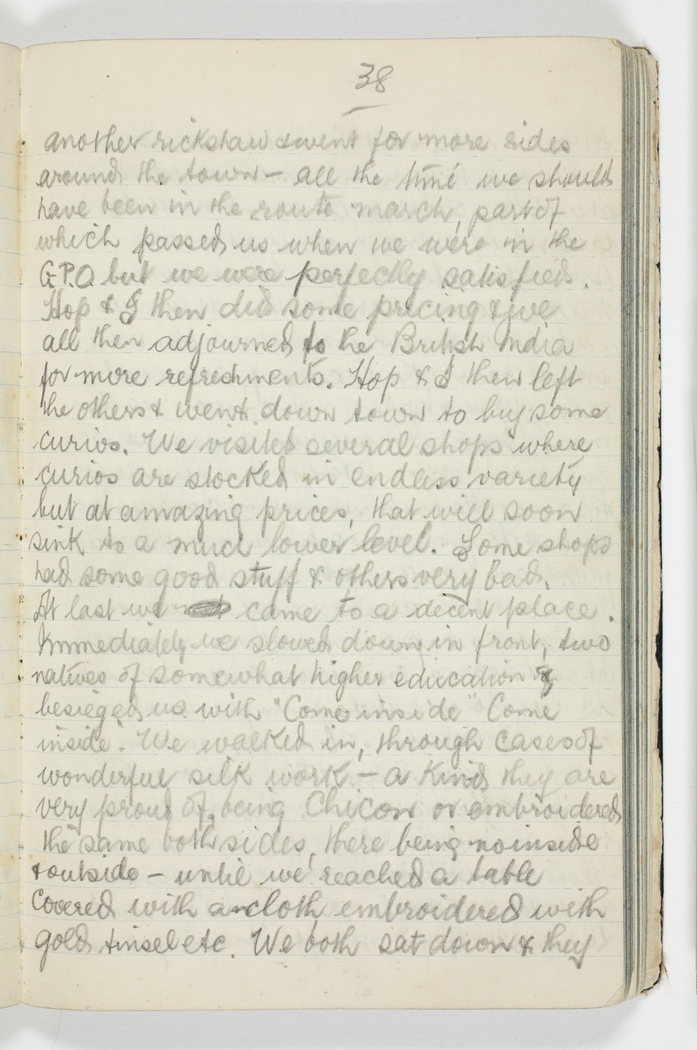 38
another rickshaw & went for more rides
around the town - all the time we should
have been in the route march, part of
which passed us when we were in the
G.P.O but we were perfectly satisfied.
Hop & I then did some pricing & we
all then adjourned to the British India
for more refreshments. Hop & I then left
the others & went down town to buy some
curios. We visited several shops where
curios are stocked in endless variety
but at amazing prices, that will soon
sink to a much lower level. Some shops
had some good stuff & others very bad.
At last we came to a decent place.
Immediately we slowed down in front, two
natives of somewhat higher education
besieged us with "Come inside" Come
inside". We walked in, through cases of
wonderful silk work - a kind they are
very proud of, being Chicon or embroidered
the same both sides, there being no inside
& outside - until we reached a table
covered with a cloth embroidered with
gold tinsel etc. We both sat down & they